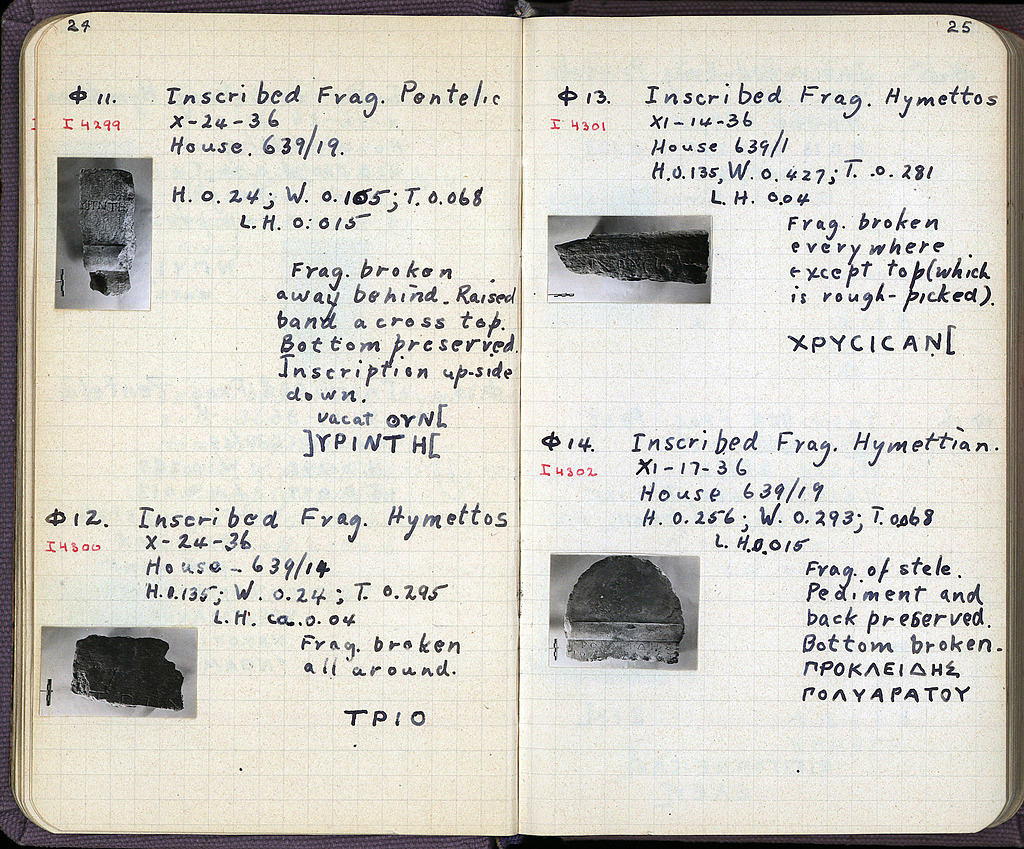 24
Φ 11. Inscribed Frag. Pentelic
I 4299 X-24-36
House. 639/19.
H. 0.24; W. 0.165; T. 0.068
L.H. 0.015
Frag. broken
away behind. Raised
band across top.
Bottom preserved.
Inscription up-side
down.
vacat ΟΥΝ[
]ΥΡΙΝΤΗ[
Φ 12. Inscribed Frag. Hymettos
I 4300 X-24-36
House - 639/14
H.0.135; W. 0.24; T. 0.295
L.H. ca. 0.04
Frag. broken
all around.
ΤΡΙΟ
25
Φ 13. Inscribed Frag. Hymettos
I 4301 XI-14-36
House 639/1
H.0.135, W. 0.427; T. 0.281
L.H. 0.04
Frag. broken
everywhere
except top (which
is rough-picked).
ΧΡΥCΙCΑΝ[
Φ 14. Inscribed Frag. Hymettian.
I 4302 XI-17-36
House 639/19
H. 0.256; W. 0.293; T. 0.068
L.H. 0.015
Frag. of stele.
Pediment and
back preserved.
Bottom broken.
ΠΡΟΚΛΕΙΔΗΣ
ΠΟΛΥΑΡΑΤΟΥ